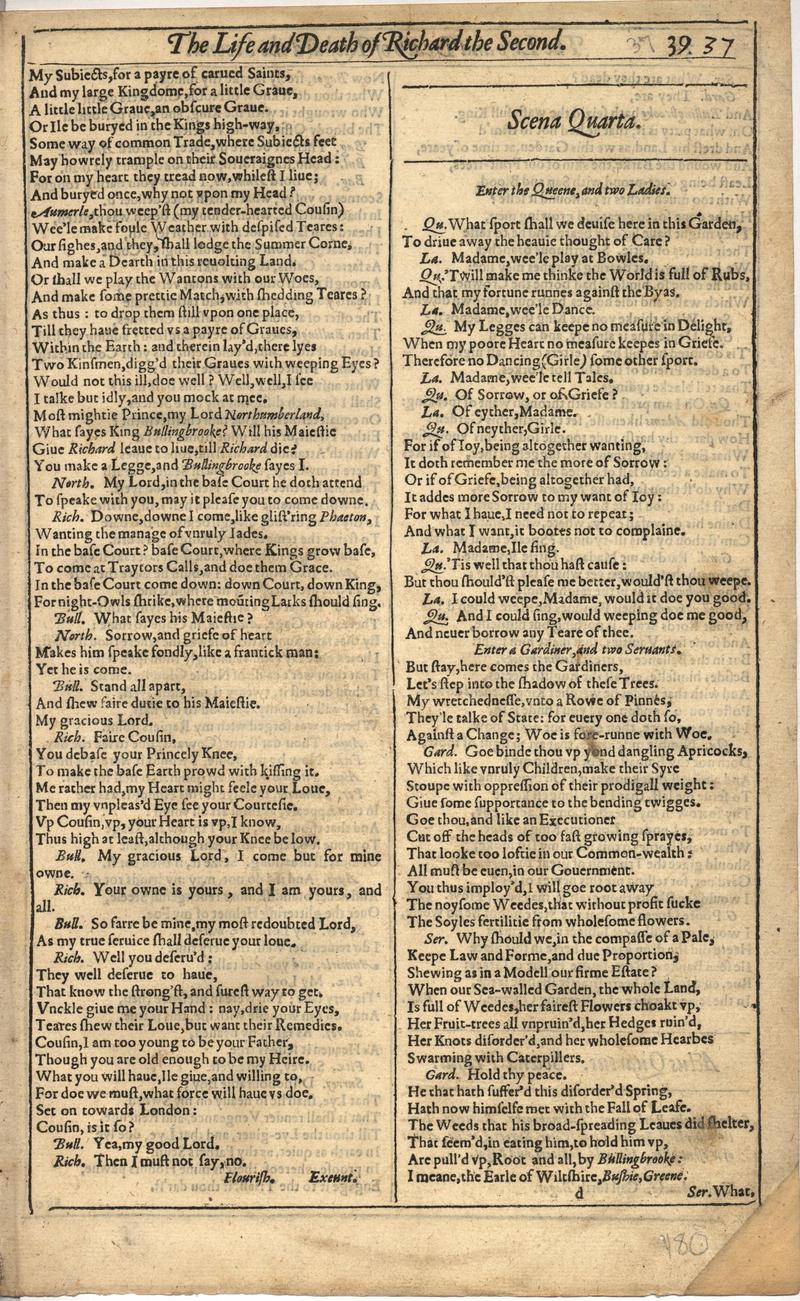 The Life and Death of Richard the Second. 37 39. 37
My Subiects,for a payre of carued Saints,
And my large Kingdome,for a little Graue,
A little little Graue,an obſcure Graue.
Or Ile be buryed in the Kings high-way,
Some way of common Trade,where Subiects feet
May howrely trample on their Soueraignes Head :
For on my heart they tread now,whileſt I liue;
And buryed once,why not vpon my Head ?
Aumerle,thou weep'ſt (my tender-hearted Couſin)
Wee'le make foule Weather with deſpiſed Teares :
Our ſighes,and they,ſhall lodge the Summer Corne,
And make a Dearth in this reuolting Land.
Or ſhall we play the Wantons with our Woes,
And make ſome prettie Match,with ſhedding Teares ?
As thus : to drop them ſtill vpon one place,
Till they haue fretted vs a payre of Graues,
Within the Earth : and therein lay'd,there lyes
Two Kinſmen,digg'd their Graues with weeping Eyes ?
Would not this ill,doe well ? Well,well,I ſee
I talke but idly,and you mock at mee.
Moſt mightie Prince,my Lord Northumberland,
What ſayes King Bullingbrooke? Will his Maieſtie
Giue Richard leaue to liue,till Richard die?
You make a Legge,and Bullingbrooke ſayes I.
North. My Lord,in the baſe Court he doth attend
To ſpeake with you, may it pleaſe you to come downe.
Rich. Downe,downe I come,like gliſt'ring Phaeton,
Wanting the manage of vnruly Iades.
In the baſe Court ? baſe Court,where Kings grow baſe,
To come at Traytors Calls,and doe them Grace.
In the baſe Court come down: down Court, down King,
For night-Owls ſhrike, where moũting Larks ſhould ſing.
Bull. What ſayes his Maieſtie ?
North. Sorrow,and griefe of heart
Makes him ſpeake fondly,like a frantick man:
Yet he is come.
Bull. Stand all apart,
And ſhew faire dutie to his Maieſtie.
My gracious Lord.
Rich. Faire Couſin,
You debaſe your Princely Knee,
To make the baſe Earth prowd with kiſſing it.
Me rather had,my Heart might feele your Loue,
Then my vnpleas'd Eye ſee your Courteſie.
Vp Couſin,vp, your Heart is vp,I know,
Thus high at leaſt,although your Knee be low.
Bull. My gracious Lord, I come but for mine
owne.
Rich. Your owne is yours , and I am yours, and
all.
Bull. So farre be mine,my moſt redoubted Lord,
As my true ſeruice ſhall deſerue your loue.
Rich. Well you deſeru'd :
They well deſerue to haue,
That know the ſtrong'ſt,and ſureſt way to get.
Vnckle giue me your Hand : nay,drie your Eyes,
Teares ſhew their Loue,but want their Remedies.
Couſin,I am too young to be your Father,
Though you are old enough to be my Heire.
What you will haue,Ile giue,and willing to,
For doe we muſt,what force will haue vs doe.
Set on towards London :
Couſin, is it ſo ?
Bull. Yea,my good Lord.
Rich. Then I muſt not ſay,no.
Flouriſh. Exeunt.
Scena Quarta.
Enter the Queene, and two Ladies.
Qu. What ſport ſhall we deuiſe here in this Garden,
To driue away the heauie thought of Care ?
La. Madame,wee'le play at Bowles.
Qu. 'Twill make me thinke the World is full of Rubs,
And that my fortune runnes againſt the Byas.
La. Madame,wee'le Dance.
Qu. My Legges can keepe no meaſure in Delight,
When my poore Heart no meaſure keepes in Griefe.
Therefore no Dancing (Girle) ſome other ſport.
La. Madame,wee'le tell Tales.
Qu. Of Sorrow, or of Griefe ?
La. Of eyther,Madame.
Qu. Of neyther,Girle.
For if of Ioy,being altogether wanting,
It doth remember me the more of Sorrow :
Or if of Griefe,being altogether had,
It addes more Sorrow to my want of Ioy :
For what I haue,I need not to repeat;
And what I want,it bootes not to complaine.
La. Madame,Ile ſing.
Qu. 'Tis well that thou haſt cauſe :
But thou ſhould'ſt pleaſe me better,would'ſt thou weepe.
La. I could weepe,Madame, would it doe you good.
Qu. And I could ſing,would weeping doe me good,
And neuer borrow any Teare of thee.
Enter a Gardiner,and two Seruants.
But ſtay,here comes the Gardiners,
Let's ſtep into the ſhadow of theſe Trees.
My wretchedneſſe,vnto a Rowe of Pinnes,
They'le talke of State: for euery one doth ſo,
Againſt a Change; Woe is fore-runne with Woe.
Gard. Goe binde thou vp yond dangling Apricocks,
Which like vnruly Children,make their Syre
Stoupe with oppreſſion of their prodigall weight :
Giue ſome ſupportance to the bending twigges.
Goe thou,and like an Executioner
Cut off the heads of too faſt growing ſprayes,
That looke too loftie in our Common-wealth :
All muſt be euen,in our Gouernment.
You thus imploy'd,I will goe root away
The noyſome Weedes,that without profit ſucke
The Soyles fertilitie from wholeſome flowers.
Ser. Why ſhould we,in the compaſſe of a Pale,
Keepe Law and Forme,and due Proportion,
Shewing as in a Modell our firme Eſtate ?
When our Sea-walled Garden, the whole Land,
Is full of Weedes,her faireſt Flowers choakt vp,
Her Fruit-trees all vnpruin'd,her Hedges ruin'd,
Her Knots diſorder'd,and her wholeſome Hearbes
Swarming with Caterpillers.
Gard. Hold thy peace.
He that hath ſuffer'd this diſorder'd Spring,
Hath now himſelfe met with the Fall of Leafe.
The Weeds that his broad-ſpreading Leaues did ſhelter,
That ſeem'd,in eating him,to hold him vp,
Are pull'd vp,Root and all,by Bullingbrooke :
I meane,the Earle of Wiltſhire,Buſhie,Greene.
d Ser. What,
180